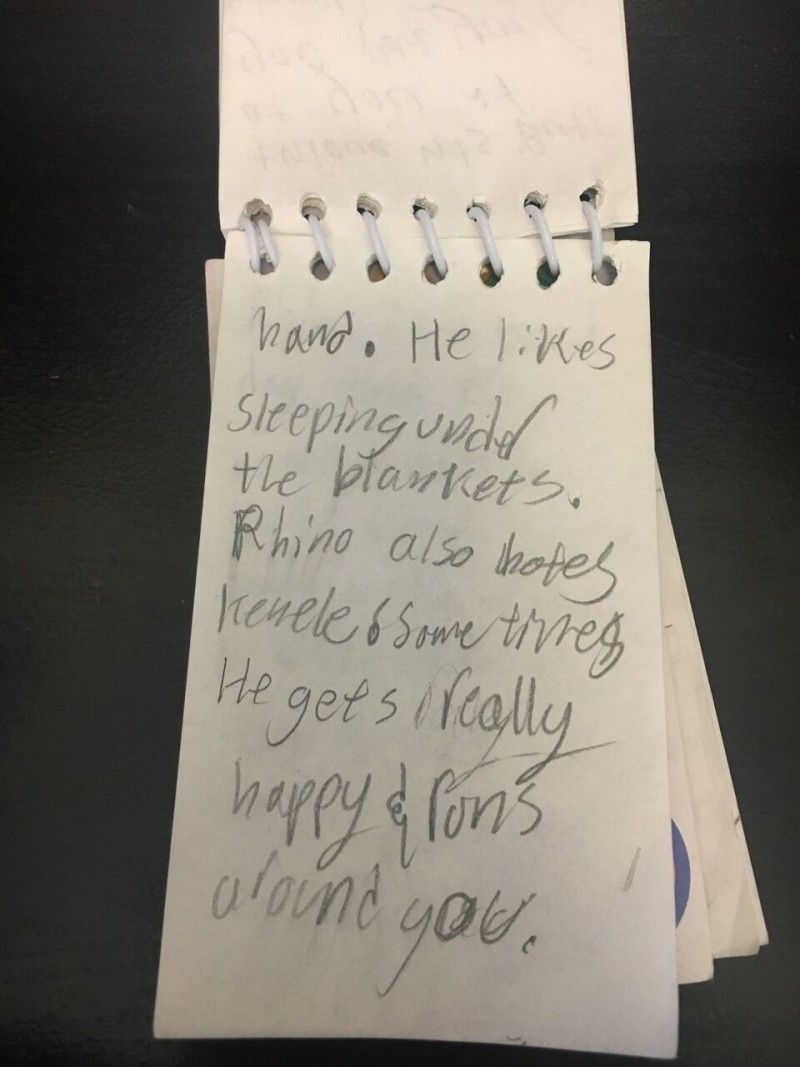 hand. He likes
sleeping under
the blankets.
Rhino also hates
kenele & Some times
He gets really
happy & rons
around you.